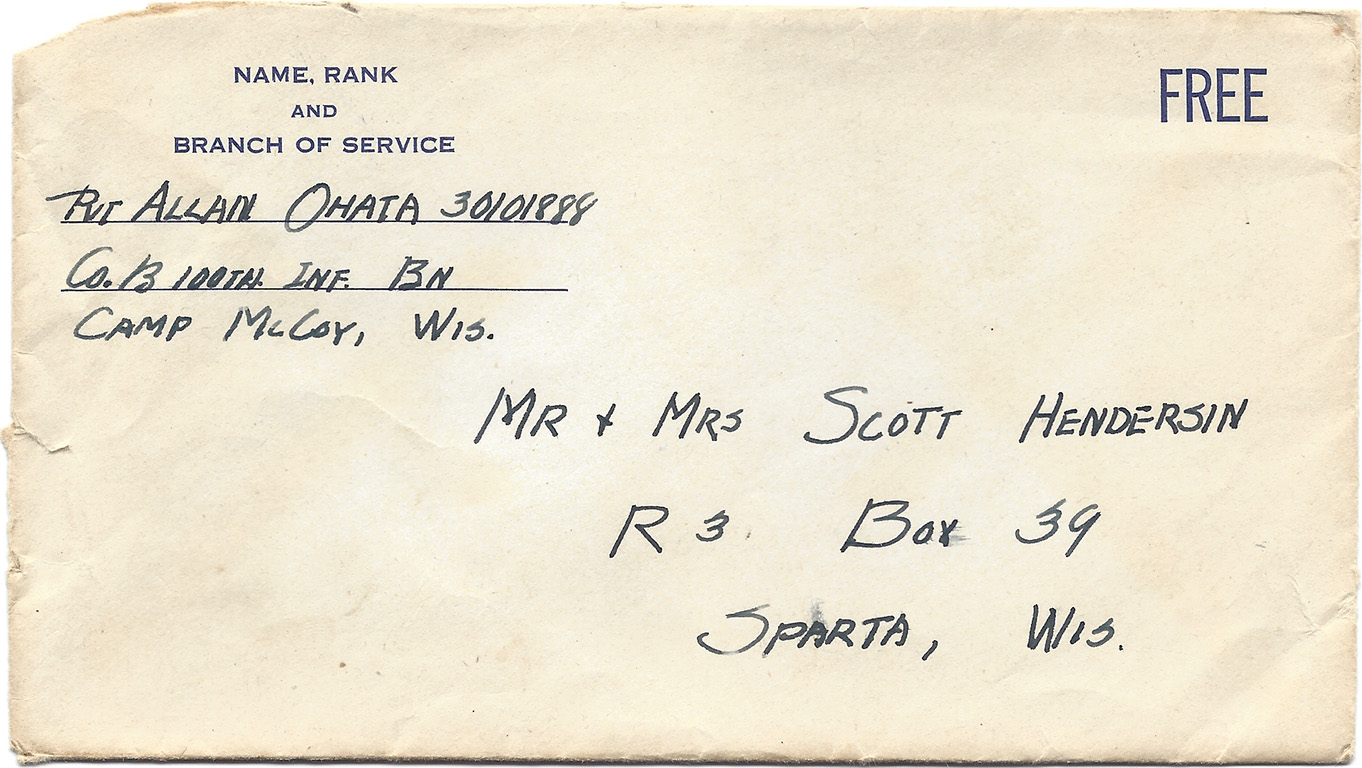 NAME, RANK
AND
BRANCH OF SERVICE
FREE
PVT ALLAN OHATA 30101888
CO. B 100TH. INF. BN
CAMP McCOY, WIS.
MR + MRS SCOTT HENDERSIN
R 3 BOX 39
SPARTA, WIS.